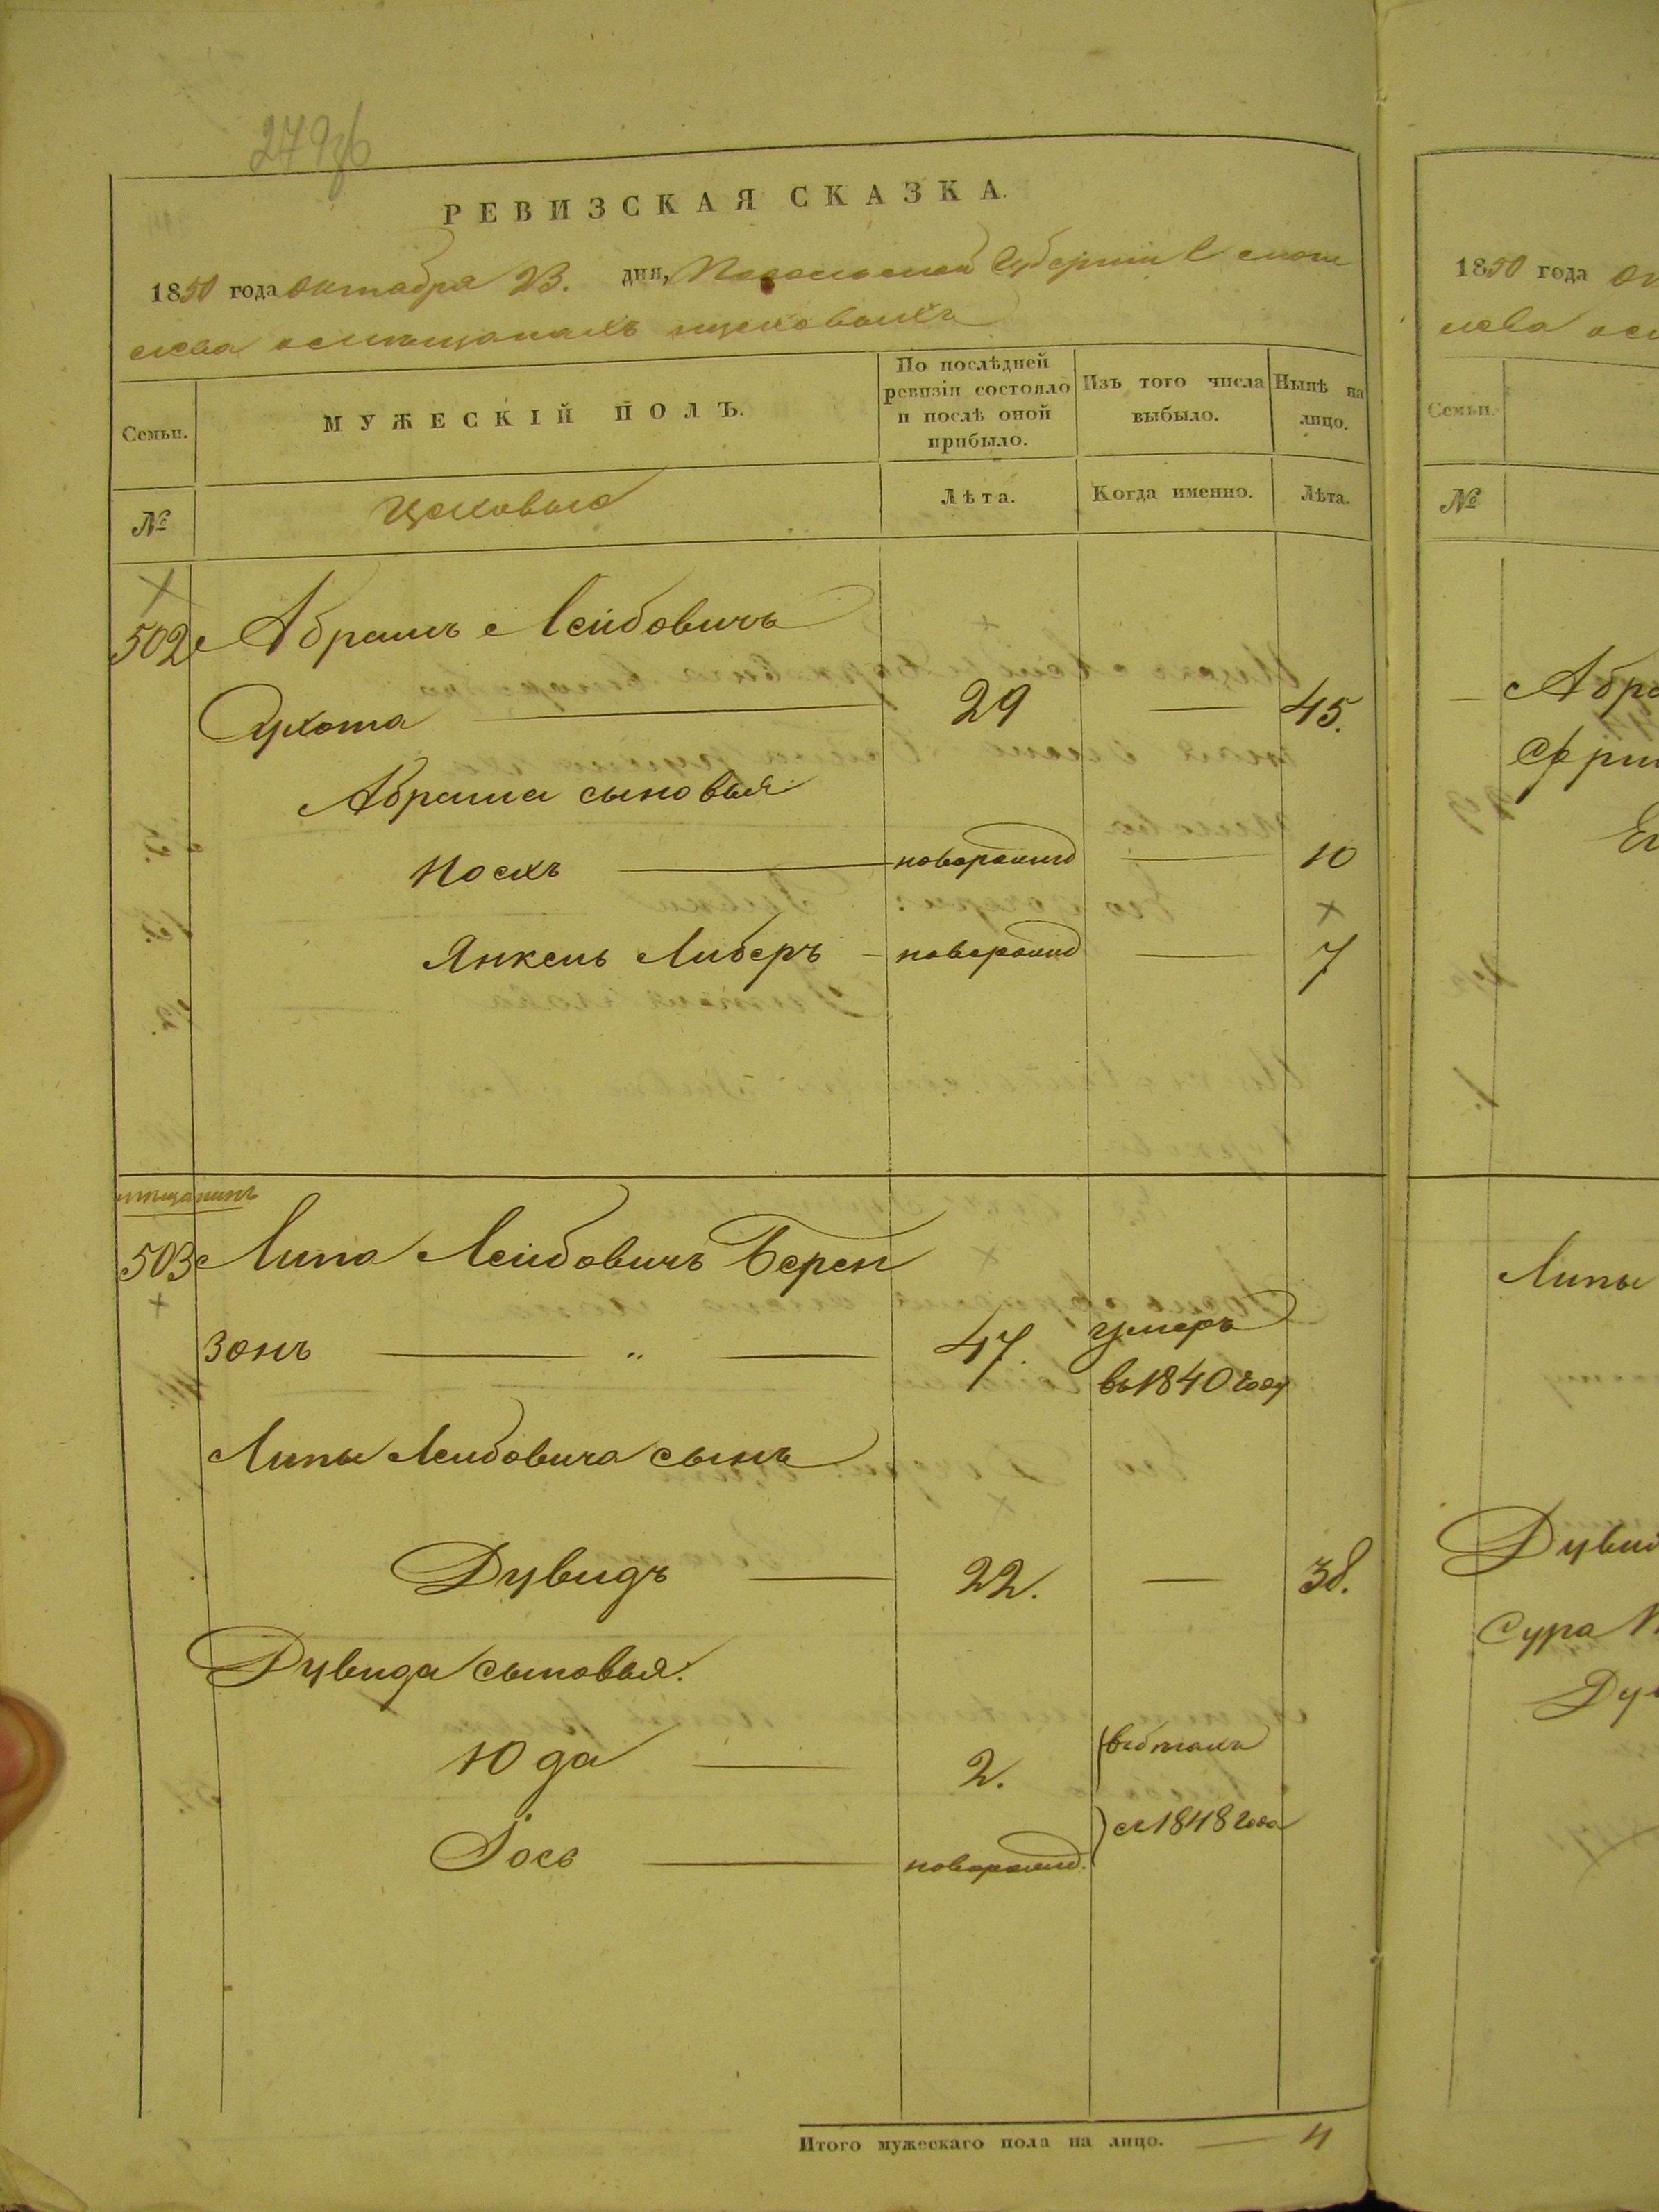 279об
РЕВИЗСКАЯ СКАЗКА.
1850 года Октября 23. дня, Подольской Губерніи
о мѣщанахъ цеховыхъ
Семьи.
МУЖЕСКІЙ ПОЛЪ.
По послѣдней ревизіи состояло и послѣ оной прибыло.
Изъ того числа выбыло.
Нынѣ на лицо.
№
Цеховые
Лѣта.
Когда именно.
Лѣта.
502 Абрамъ Лейбовичъ
Сухота 29 45.
Абрама сыновья
Носхъ новорожд 10
Янкель Либеръ новорожд 7
мѣщанинъ
503 Липа Лейбовичъ Берен
зонъ „ 47. умеръ
въ 1840 году
Липы Лейбовича сынъ
Дувидъ 22. 38.
Дувида сыновья:
Юда 2. въ бѣгахъ
Іось новорожд. съ 1848 года
Итого мужескаго пола на лицо. 4
1850 года
Семьи.
№
Абра
Липы
Дувид
Сура